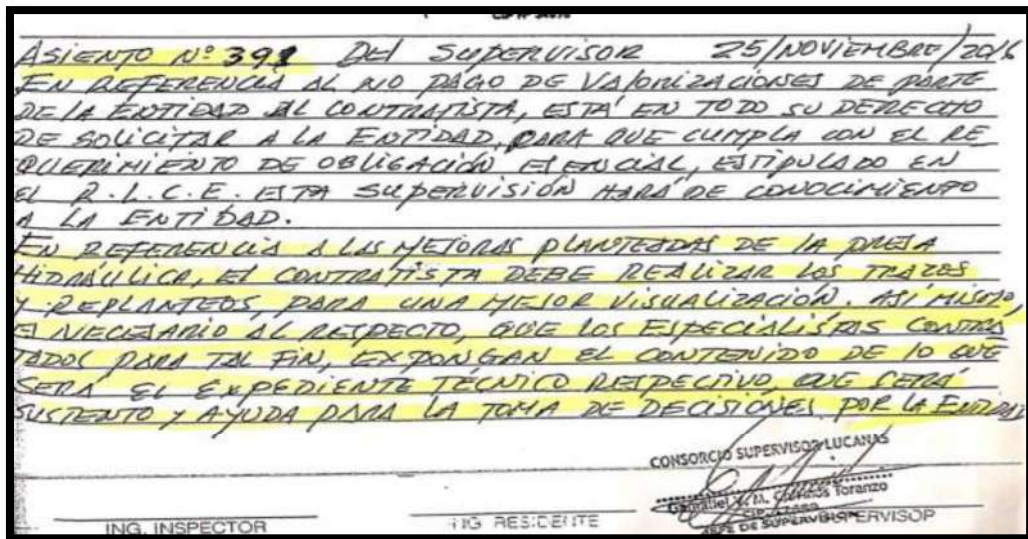 ASIENTO Nº 391 DEL SUPERVISOR 25/NOVIEMBRE/2016
EN REFERENCIA AL NO PAGO DE VALORIZACIONES DE PARTE
DE LA ENTIDAD AL CONTRATISTA, ESTÁ EN TODO SU DERECHO
DE SOLICITAR A LA ENTIDAD, PARA QUE CUMPLA CON EL RE
QUERIMIENTO DE OBLIGACIÓN ESENCIAL, ESTIPULADO EN
EL R.L.C.E. ESTA SUPERVISIÓN HARÁ DE CONOCIMIENTO
A LA ENTIDAD.
EN REFERENCIA A LAS MEJORAS PLANTEADAS DE LA PRESA
HIDRÁULICA, EL CONTRATISTA DEBE REALIZAR LOS TRAZOS
Y REPLANTEOS, PARA UNA MEJOR VISUALIZACIÓN. ASÍ MISMO,
ES NECESARIO AL RESPECTO, QUE LOS ESPECIALISTAS CONTRA
TADOS PARA TAL FIN, EXPONGAN EL CONTENIDO DE LO QUE
SERÁ EL EXPEDIENTE TÉCNICO RESPECTIVO, QUE SERÁ
SUSTENTO Y AYUDA PARA LA TOMA DE DECISIONES POR LA ENTIDAD
CONSORCIO SUPERVISOR LUCANAS
Toranzo
JEFE DE SUPERVISION
ING. INSPECTOR
ING RESIDENTE